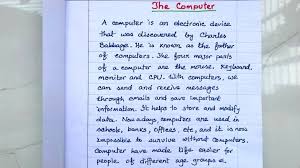 The Computer
A computer is an electronic device
that was discovered by Charles
Babbage. He is known as the father
of computers. The four major parts
of a computer are the mouse, Keyboard,
monitor and CPU. With computers, we
can send and receive messages
through emails and save important
information. It helps to store and modify
data. Nowadays, computers are used in
schools, banks, offices, etc, and it is now
impossible to survive without computers.
Computer have made life easier for
people of different age, groups &